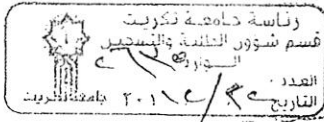 رئاسة جامعة تكريت
قسم شؤون الطلبة والتسجيل
الواردة
العدد
التاريخ / / ٢٠١
جامعة تكريت